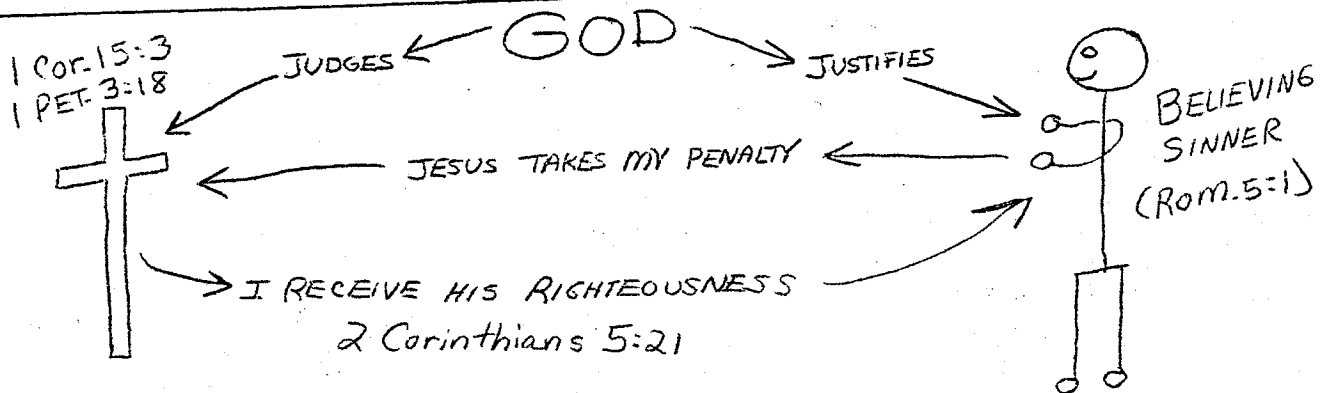 GOD
1 Cor. 15:3
1 PET. 3:18
JUDGES
JUSTIFIES
BELIEVING
SINNER
(Rom. 5:1)
JESUS TAKES MY PENALTY
I RECEIVE HIS RIGHTEOUSNESS
2 Corinthians 5:21